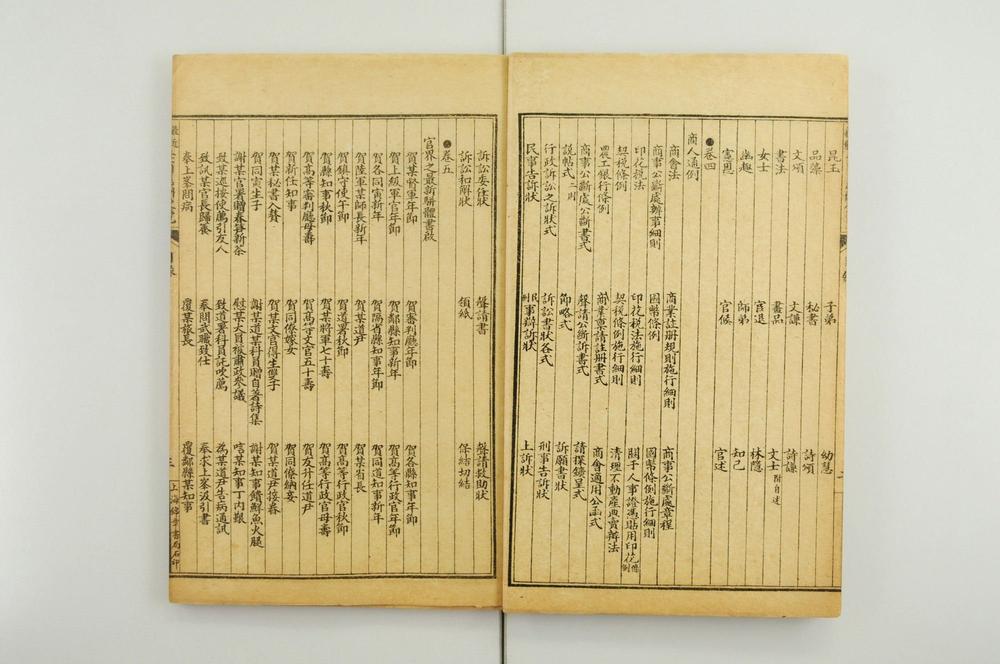 昆玉 子弟 幼慧
品藻 秘書 詩頌
文頌 文謙 詩謙
書法 畫品 文士附自述
女士 宮退 林隱
幽趣 師弟 知己
憲恩 官候 官述
卷四
商人通例
商會法 商業註冊規則施行細則 商事公斷處章程
商事公斷處辦事細則 國幣條例 國幣條例施行細則
印花稅法 印花稅法施行細則 關于人事證憑貼用印花條例
契稅條例 契稅條例施行細則 清理不動產典賣辦法
農工銀行條例 商業稟請註冊書式 商會適用公函式
商事公斷處公斷書式 聲請公斷訴書式 請探鑛呈式
說帖式二則 節略式 訴願書狀
行政訴訟之訴狀式 訴訟書狀各式 刑事告訴狀
民事告訴狀 民事辯訴狀 上訴狀
訴訟委任狀 聲請書 聲請救助狀
訴訟和解狀 領紙 保結切結
卷五
官界之最新駢體書啟
賀某督軍年節 賀審判廳年節 賀各縣知事年節
賀上級軍官年節 賀鄰縣知事新年 賀高等行政官年節
賀各同寅新年 賀陽省縣知事年節 賀同道知事新年
賀陸軍某師長新年 賀某道尹 賀某省長
賀鎮守使午節 賀道署秋節 賀高等行政官秋節
賀縣知事秋節 賀某將軍七十壽 賀某高等行政官母壽
賀高等審判廳母壽 賀高等文官五十壽 賀友升任道尹
賀新任知事 賀同僚嫁女 賀同僚納妾
賀某秘書入贅 賀某文官得生孿子 賀某道尹接眷
賀同寅生子 謝某道某科員贈自著詩集 謝某知事饋鮮魚火腿
謝某官署贈春筍新茶 慰某大員被肅政參議 唁某知事丁內艱
致某巡按使薦引友人 致道署科員託吹薦 為某道尹告病通訊
致訊某官長歸養 奉問武職致仕 奉求上峯汲引書
奉上峯問病 覆某旅長 覆鄰縣某知事
目錄 三 上海錦章書局石印